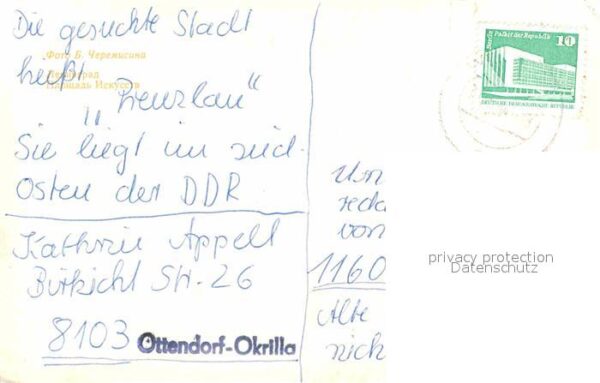 Die gesuchte Stadt
Фото Б. Черемисина
heißt
Ленинград
Площадь Искусств
„Prenzlau“
Sie liegt im süd-
Osten der DDR
Kathrin Appelt
Birkicht Str. 26
8103 Ottendorf-Okrilla
Berlin, Palast der Republik
10
DEUTSCHE DEMOKRATISCHE REPUBLIK
Un
reda
von
1160
Alte
nich
privacy protection
Datenschutz